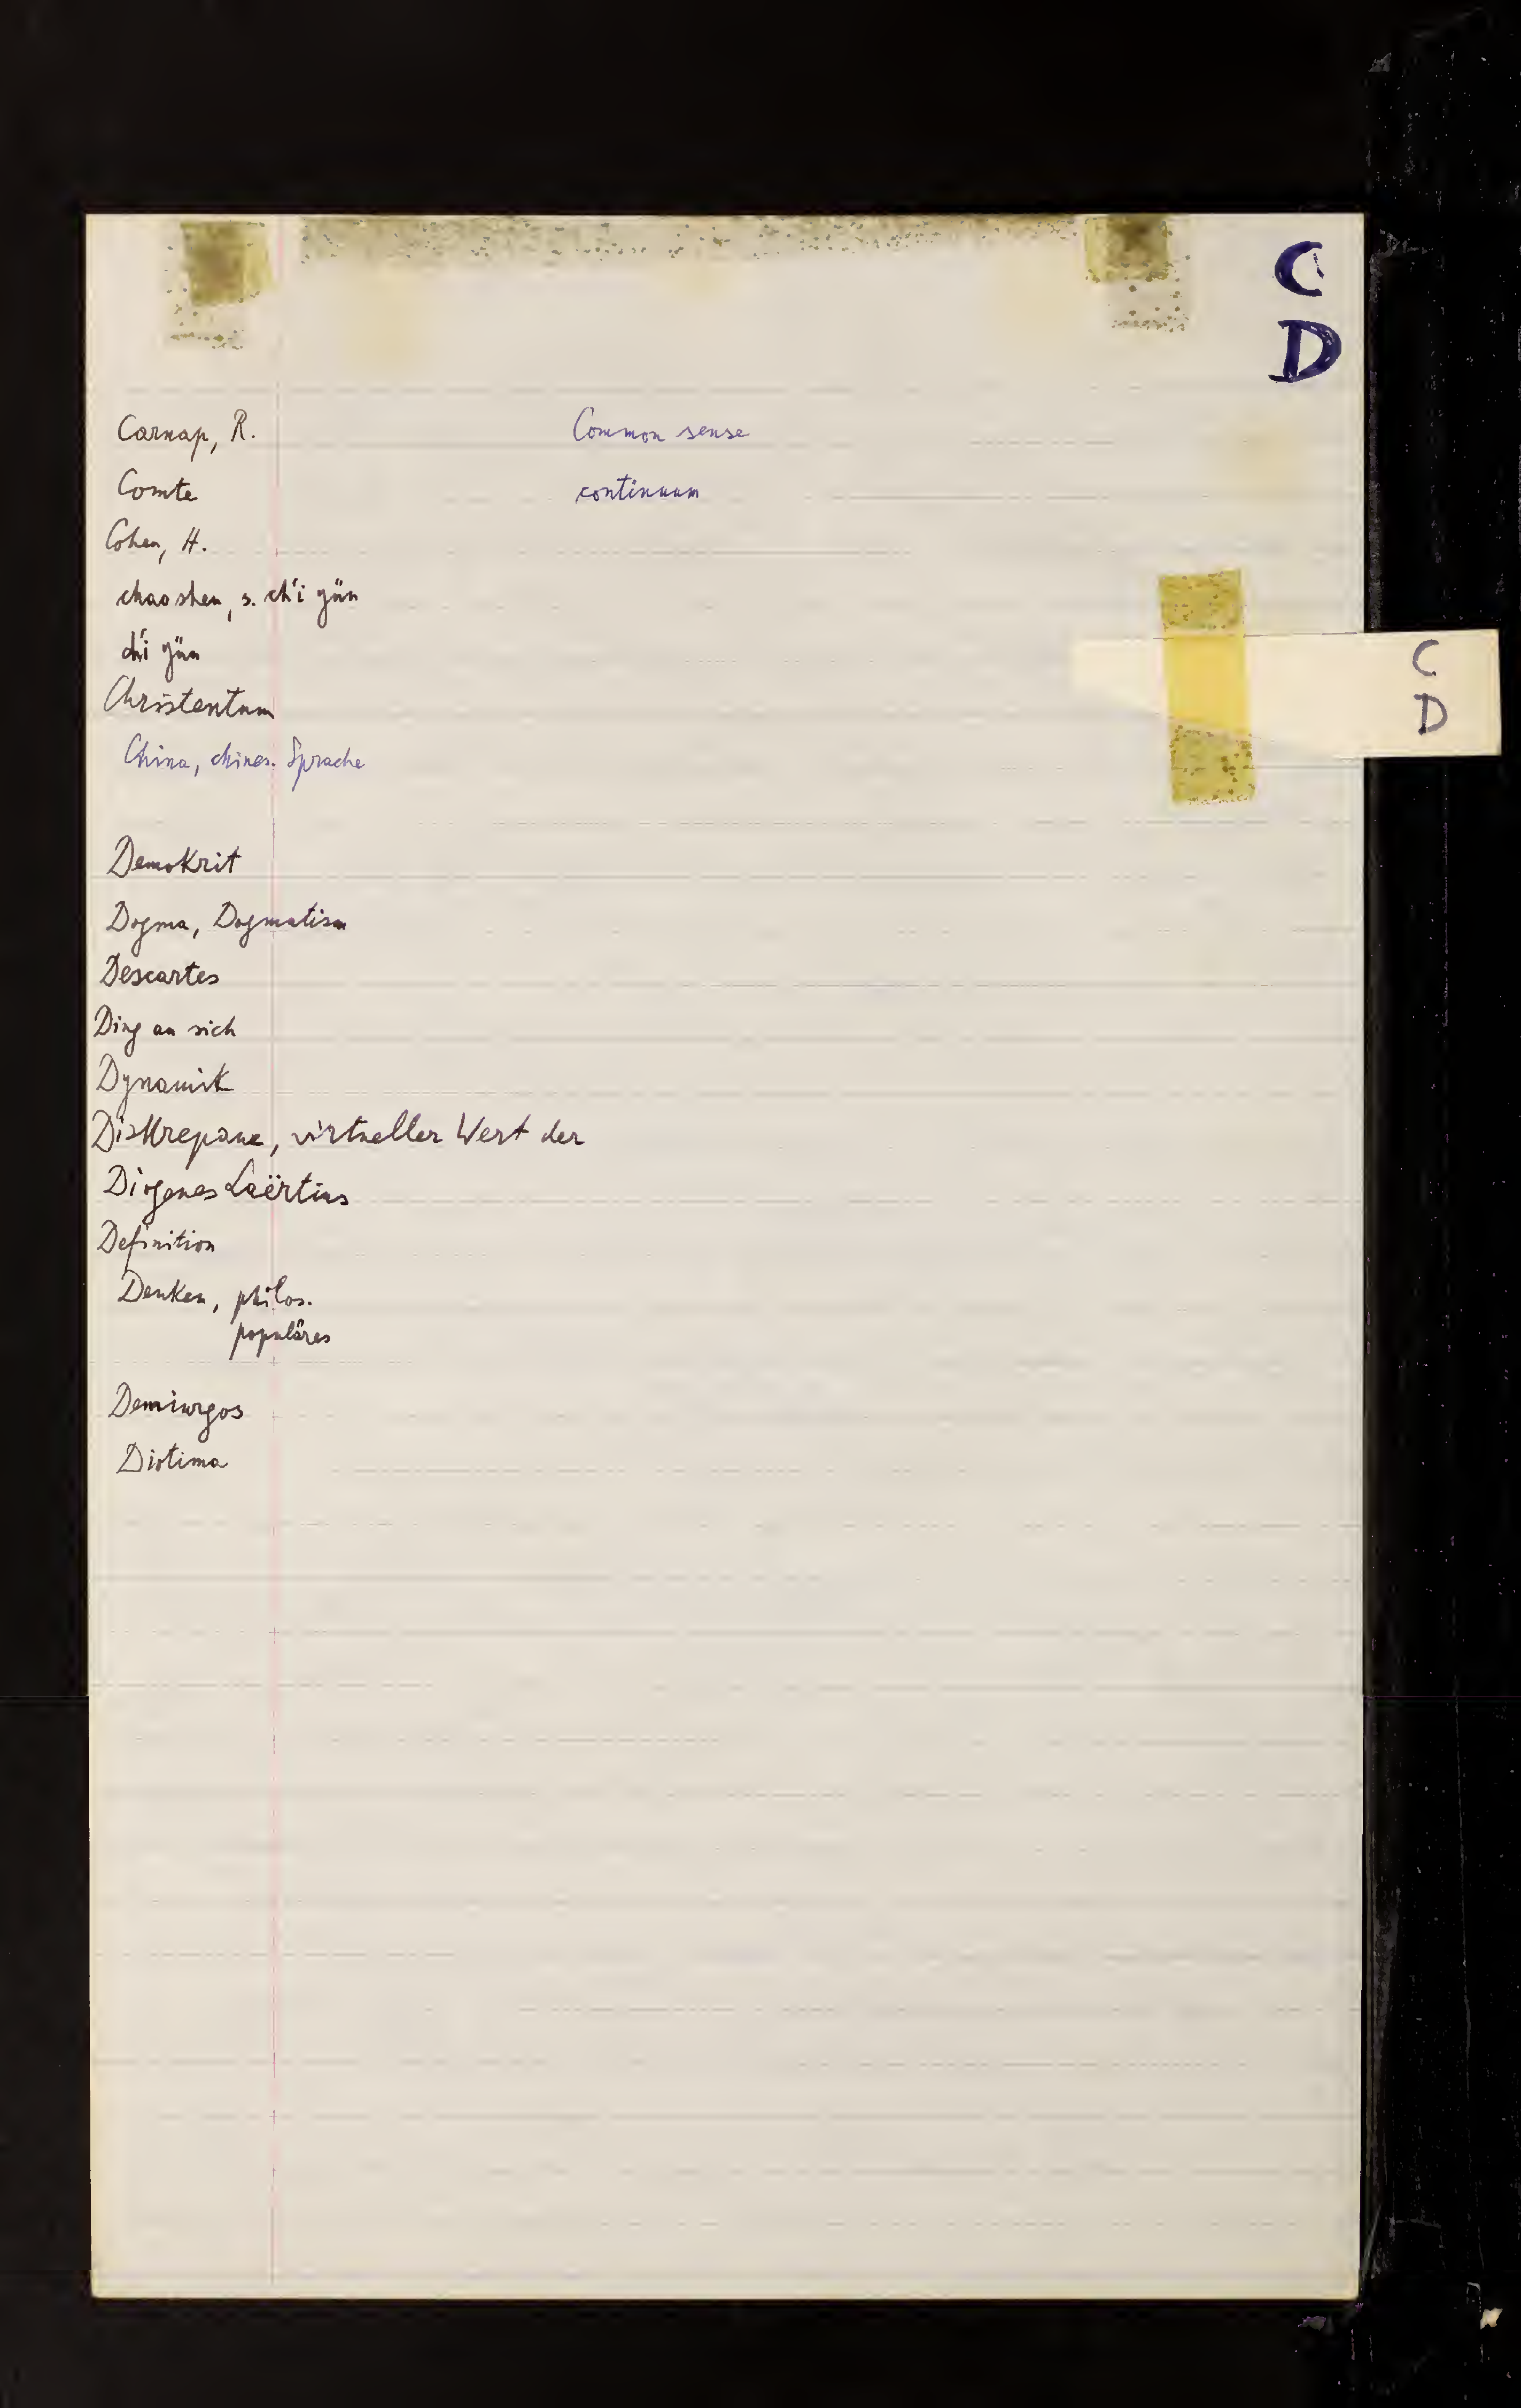 C
D
Carnap, R.
Comte
Cohen, H.
chao shen, s. ch'i yün
ch'i yün
Christentum
China, chines. Sprache
Common sense
continuum
C
D
Demokrit
Dogma, Dogmatism
Descartes
Ding an sich
Dynamik
Diskrepanz, virtueller Wert der
Diogenes Laërtius
Definition
Denken, philos.
populäres
Demiurgos
Diotima